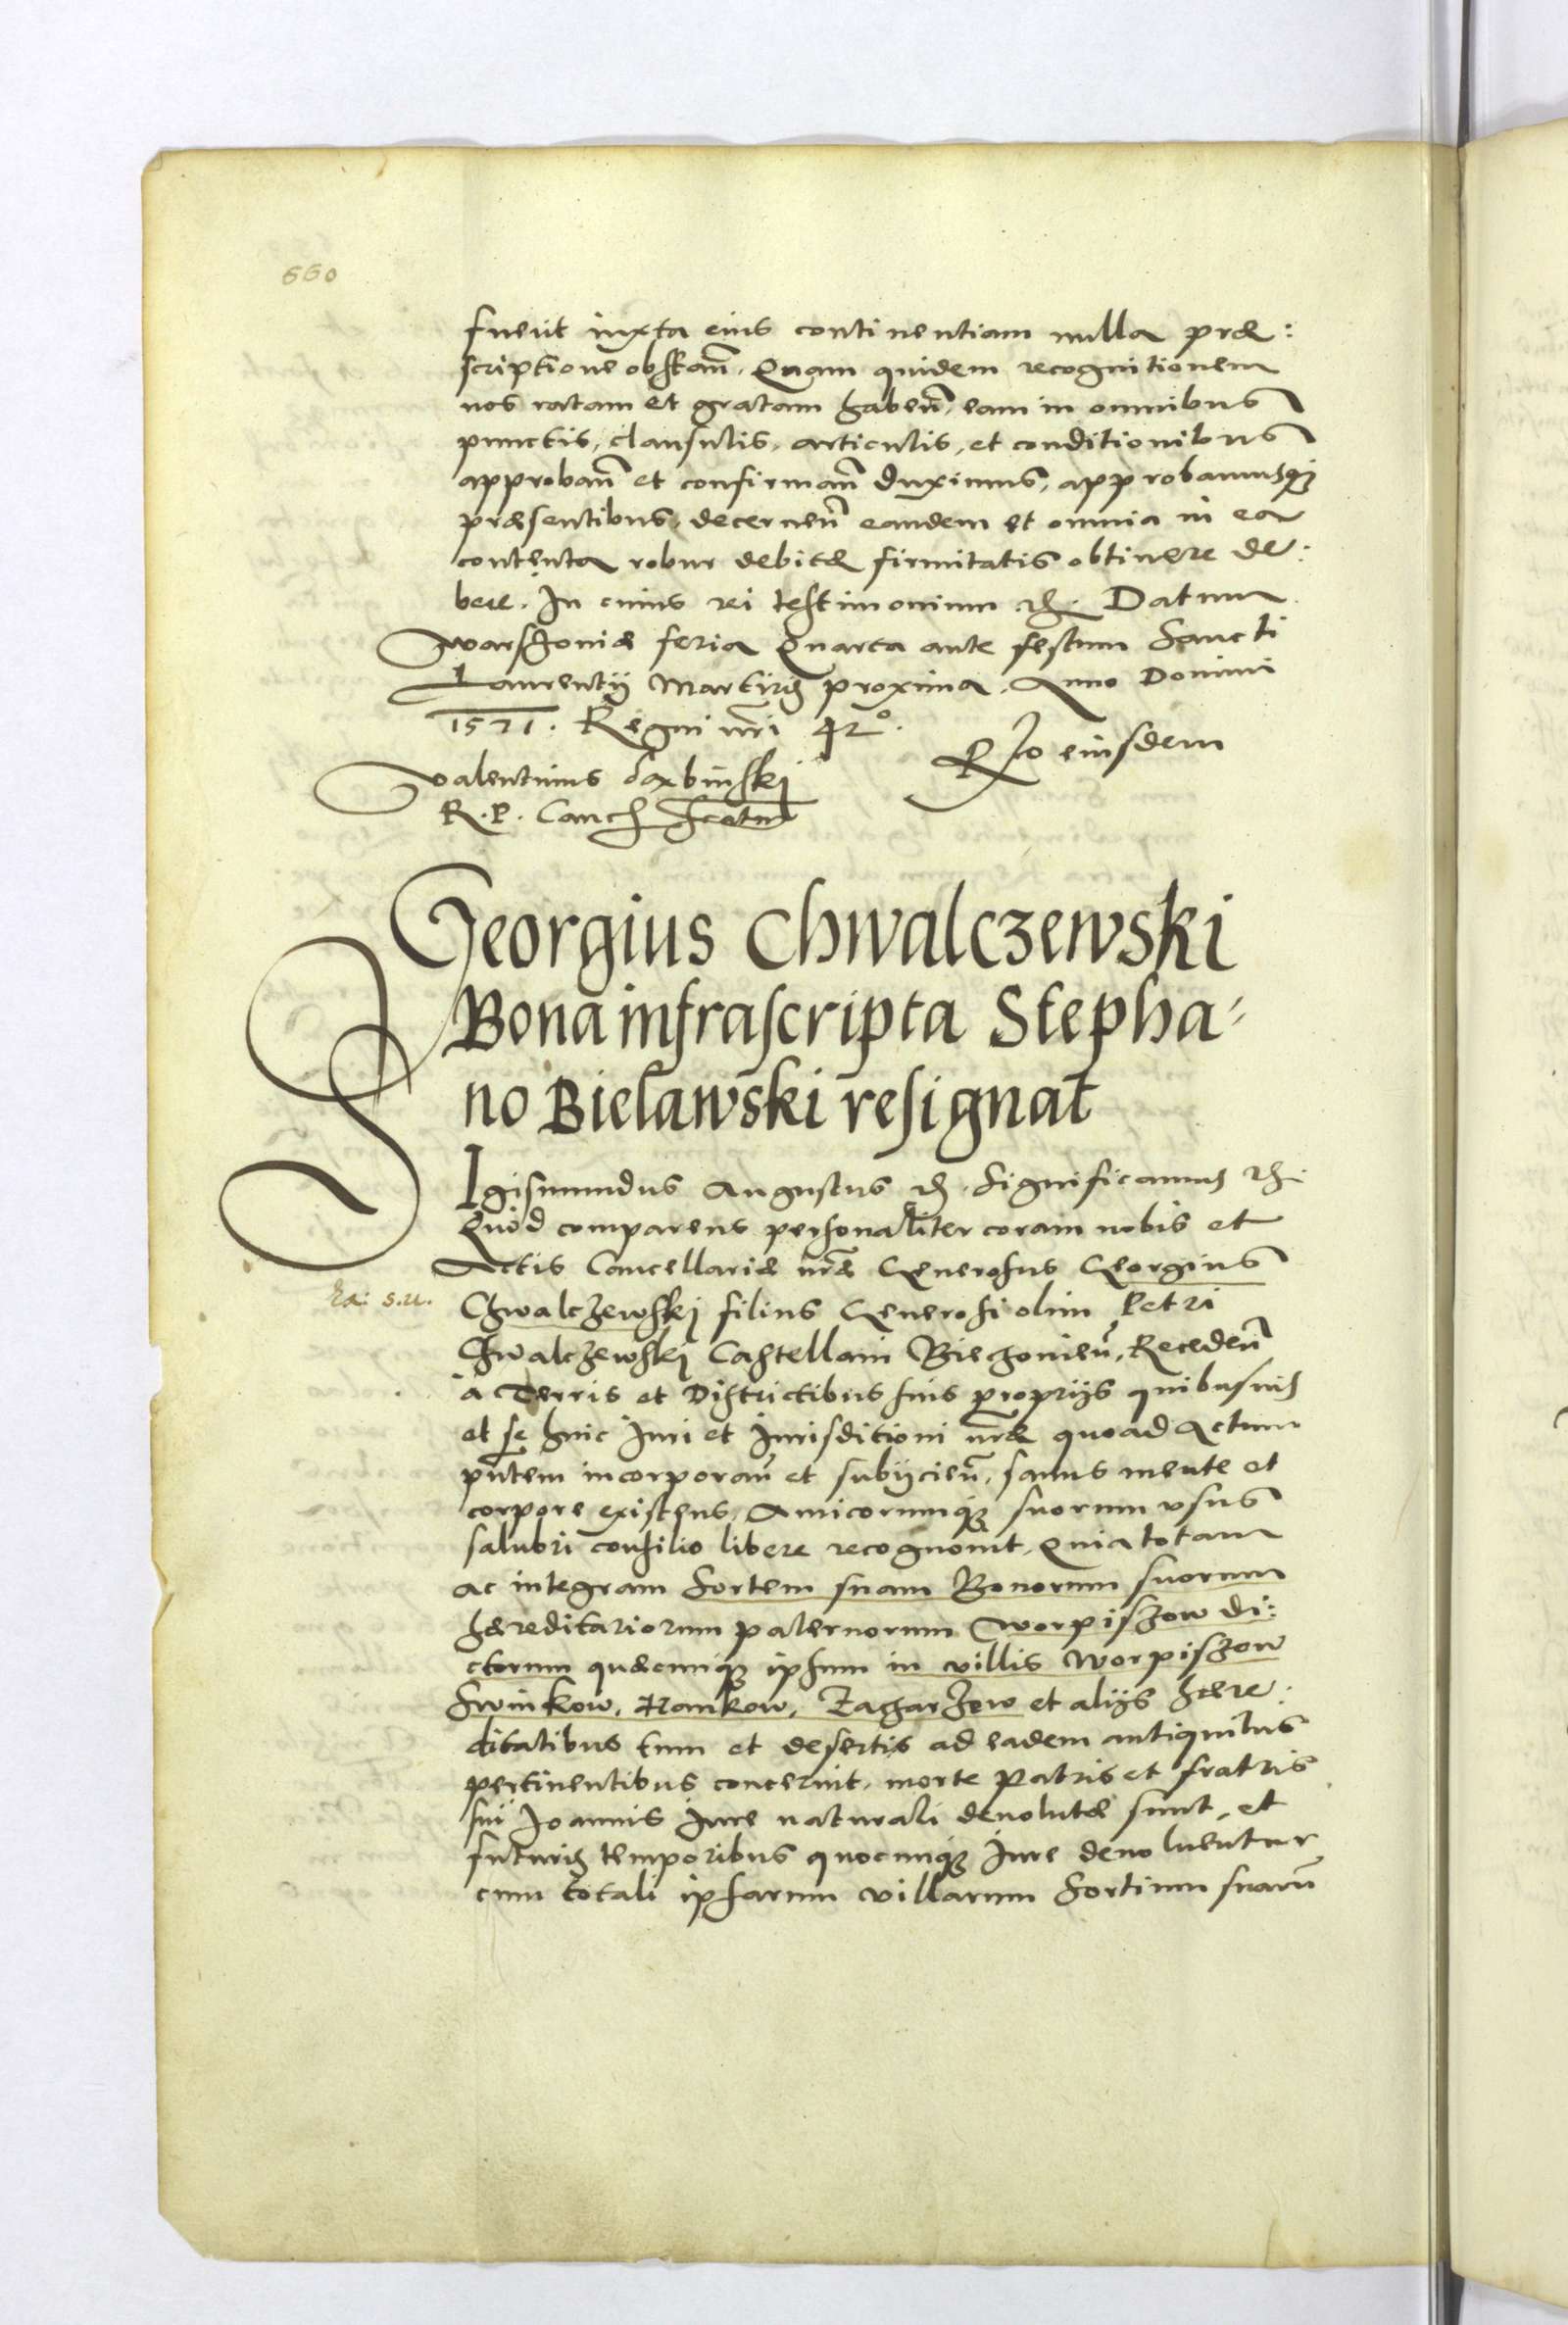 550
fuerit iuxta eius continentiam nulla præ:
scriptione obstan̄. Quam quidem recognitionem
nos ratam et gratam haben̄, eam in omnibus
punctis, clausulis, articulis, et conditionibus
approban̄ et confirman̄ duximus, approbamusq;
præsentibus, decernen̄ eandem et omnia in ea
contenta robur debitæ firmitatis obtinere de:
bere. In cuius rei testimonium etc. Datum
Warschoviæ feria Quarta ante festum Sancti
Laurentij Martiris proxima. Anno Domini
1571. Regni nr̄i 42°.
Rlo eiusdem
Valentinus Daxbinskj
R. P. Canc
Georgius Chwalczewski
Bona infrascripta Stepha-
no Bielawski resignat
Sigismundus Augustus etc. Significamus etc.
Quod comparens personaliter coram nobis et
Actis Cancellariæ nr̄æ Generosus Georgius
Chwalczewskj filius Generosi olim Petri
Chwalczewskj Castellani Biechovien̄, Receden̄
à Terris et Districtibus suis proprijs quibusuis
et se huic Iuri et Iurisditioni nr̄æ quoad Actum
pn̄tem incorporan̄ et subijcien̄, sanus mente et
corpore existens, Amicorumq; suorum vsus
salubri consilio libere recognovit, Quia totam
ac integram Sortem suam Bonorum suorum
hæreditariorum paternorum Worpiszow di:
ctorum quæcunq; ipsum in villis Worpiszow
Swinkow, Hankow, Zagarzew et alijs hære:
ditatibus tum et desertis ad eadem antiquitus
pertinentibus concernit, morte Patris et fratris
sui Joannis Iure naturali devolutæ sunt, et
futuris temporibus quocunq; Iure devoluentur
cum totali ipsarum villarum Sortium suarū